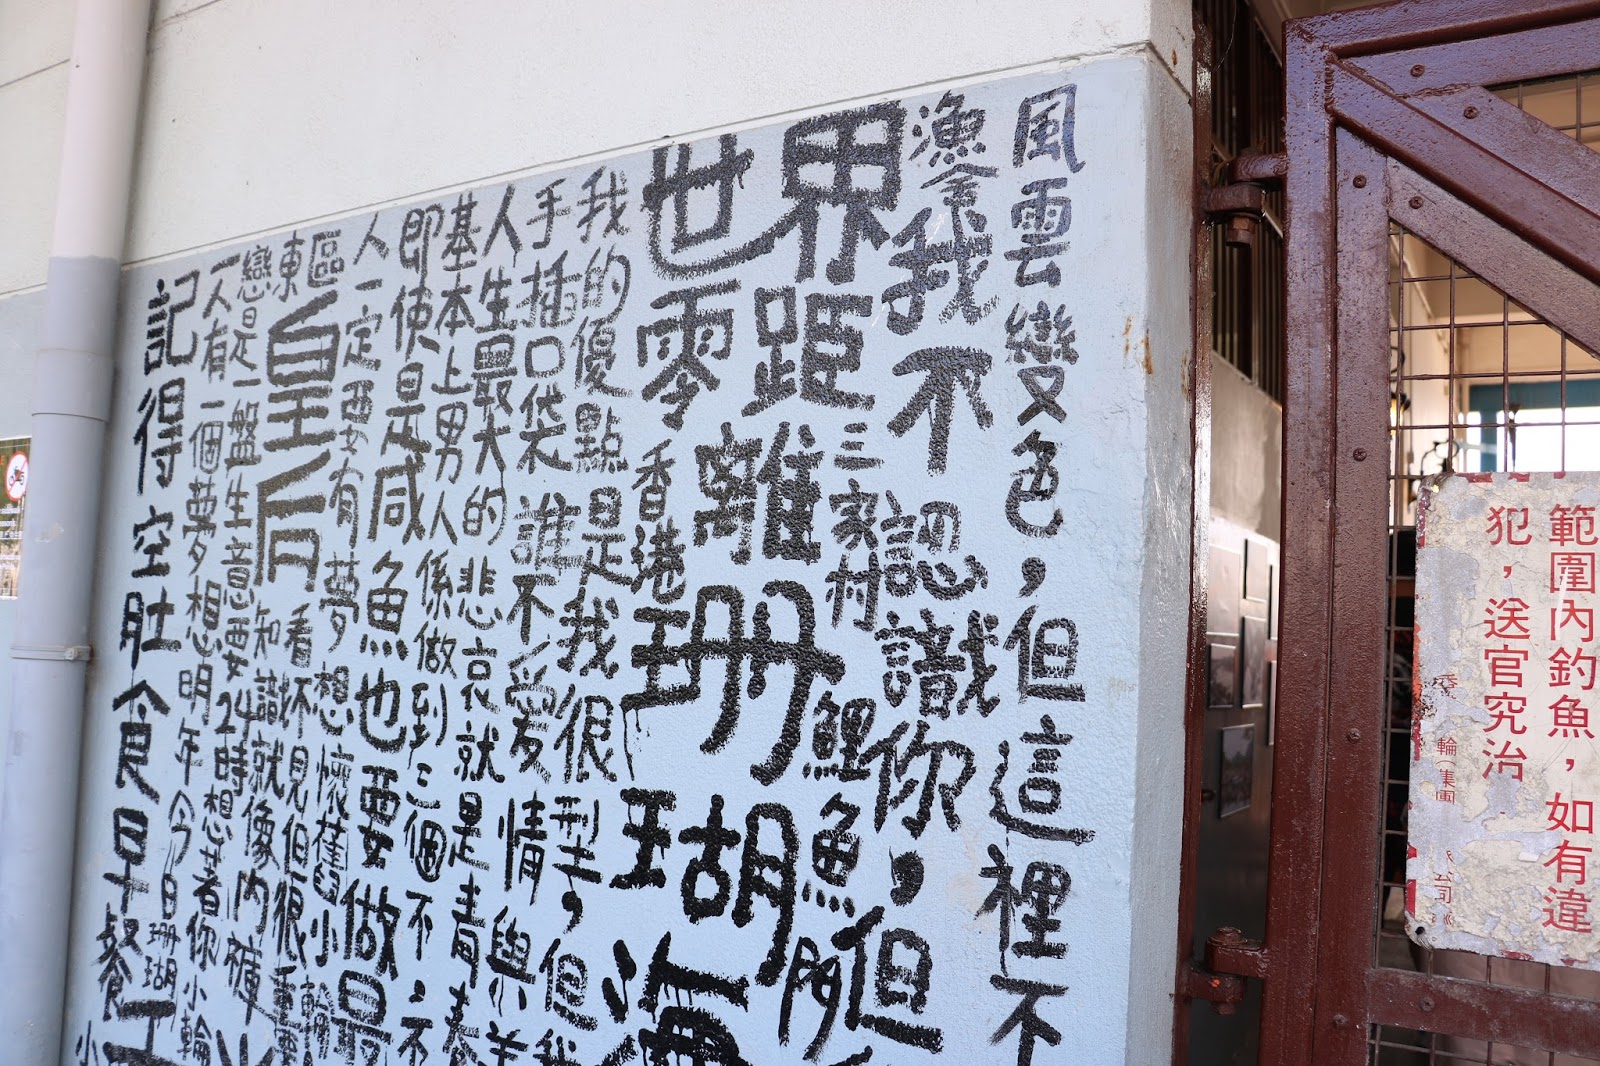 風雲變色，但這裡不
我不認識你，但
三家村
鯉魚門
世界
零距離
珊瑚海
香港
我的優點是我很型，但我
手插口袋誰不愛
情與
人生最大的悲哀就是青春
基本上男人係做到三個不，不
即使是咸魚也要做最
人一定要有夢想懷舊小輪
東區
皇后
知識就像內褲
看不見但很重要
戀是一盤生意要24時想著你小輪
一人有一個夢想明年今日珊瑚
記得空肚食早餐
小
範圍內釣魚，如有違
犯，送官究治
輪(集團
公司